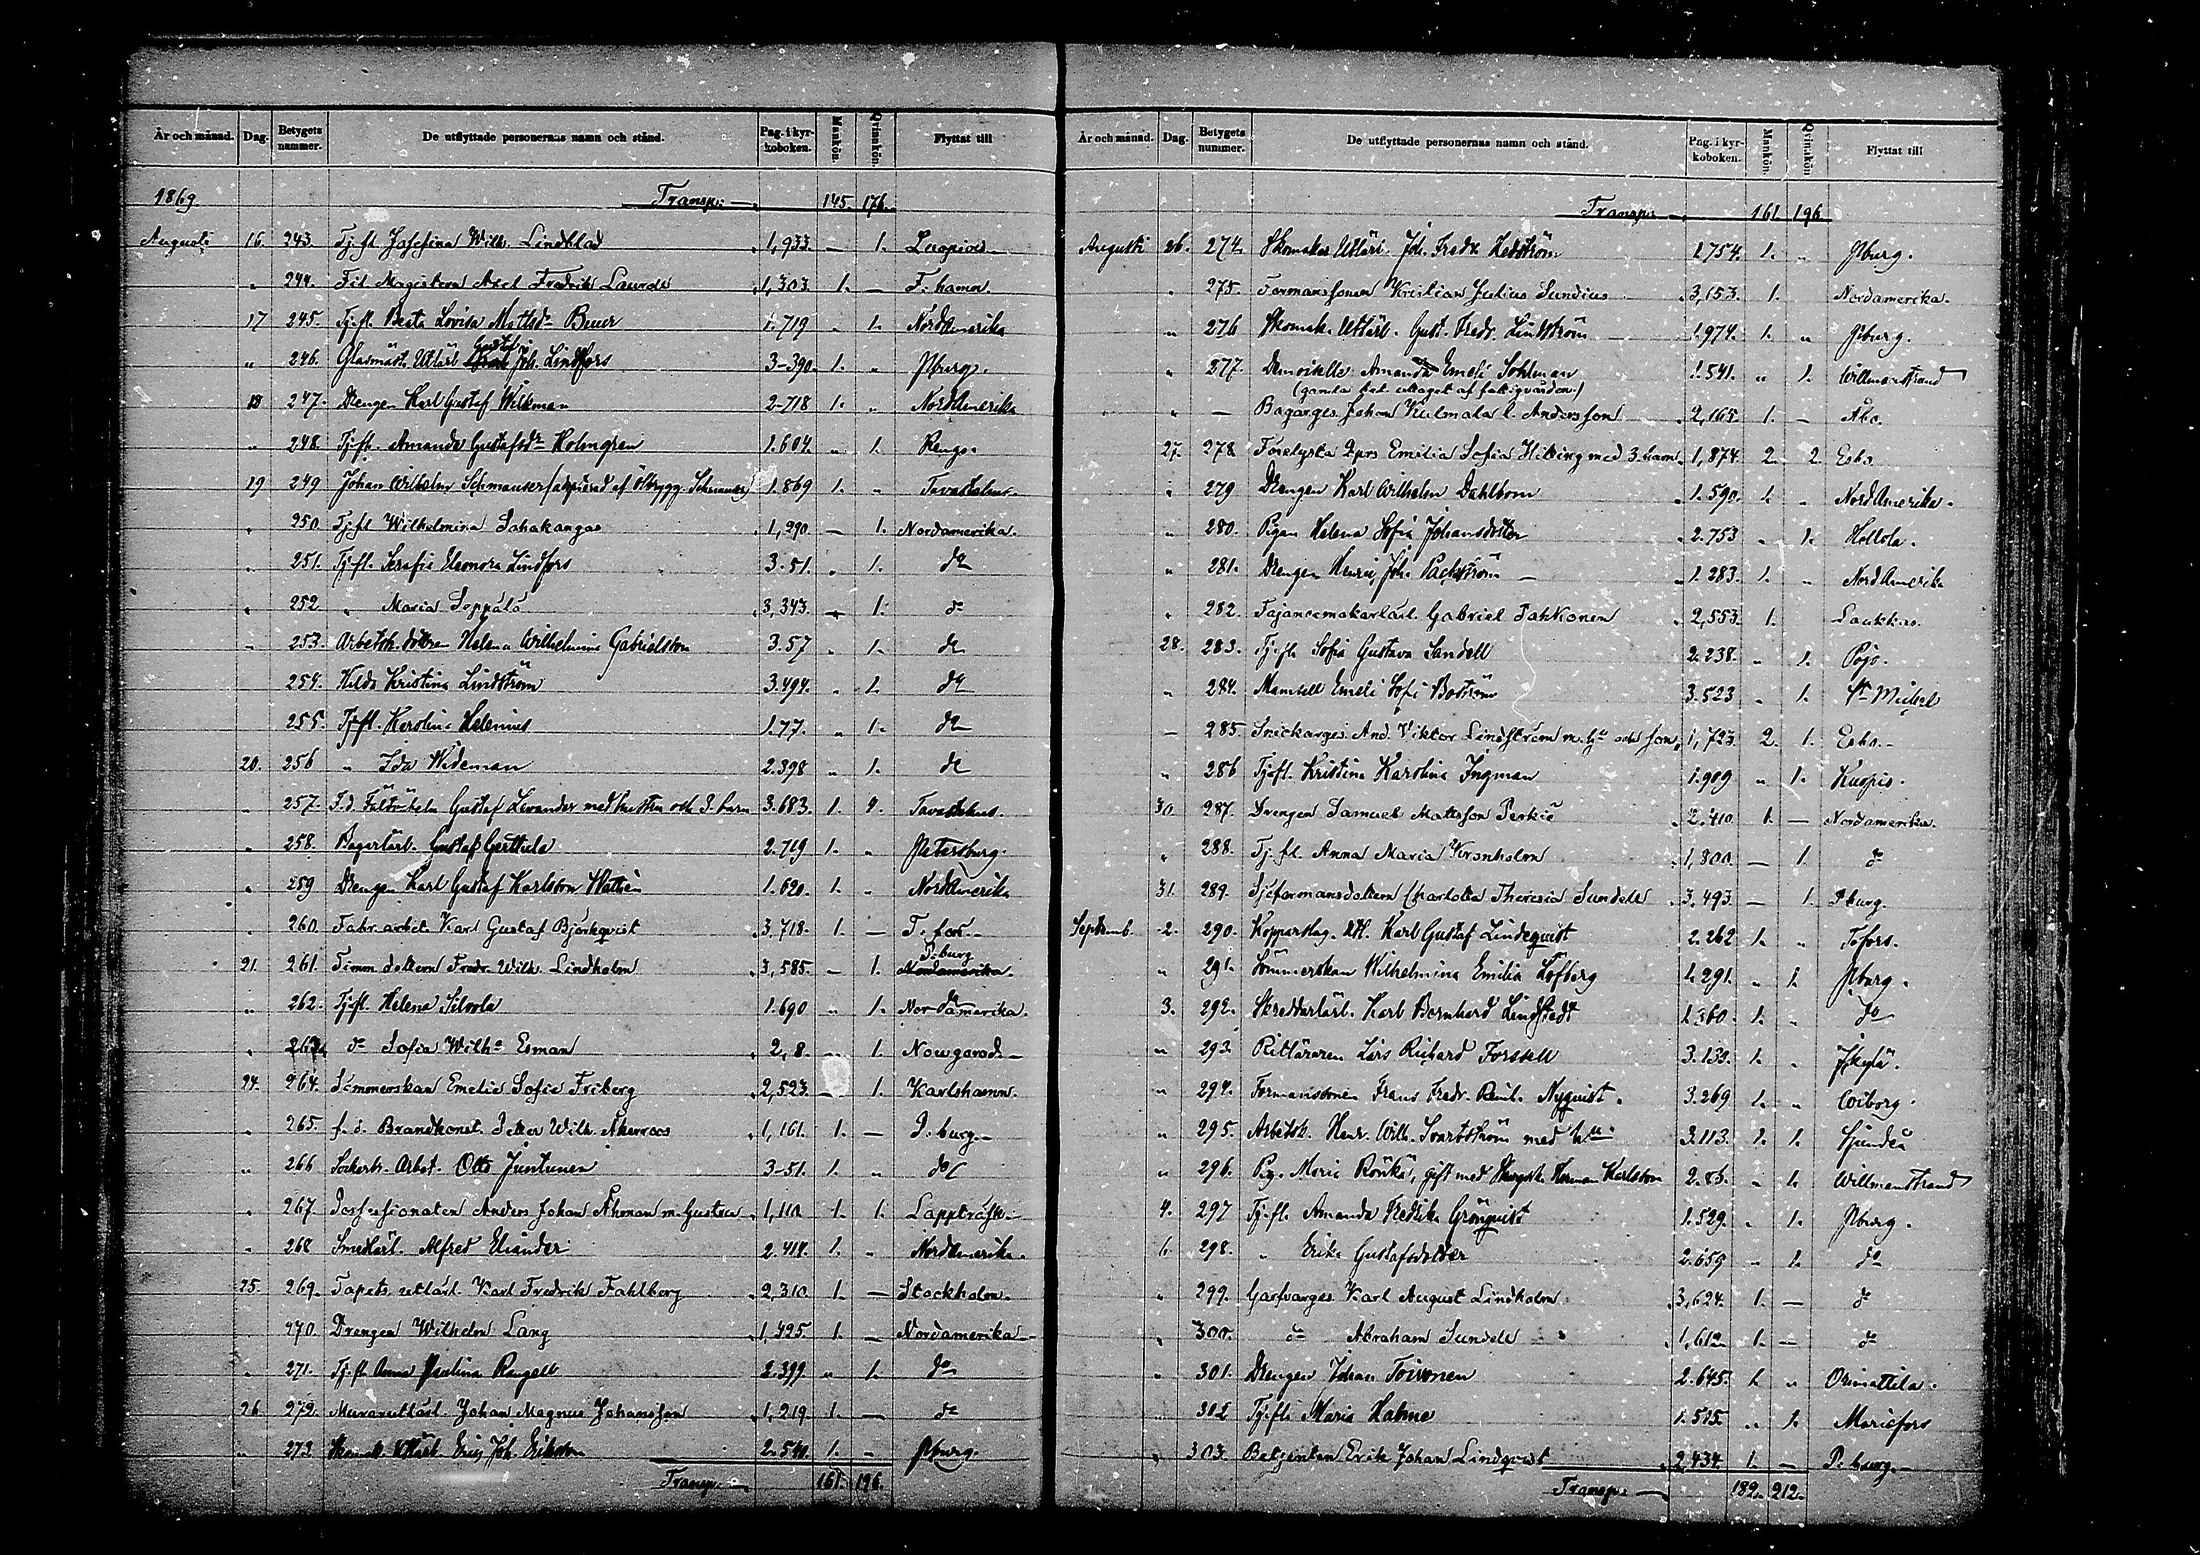 År och månad. Dag. Betygets nummer. De utflyttade personernas namn och stånd. Pag. i kyrkoboken. Mankön. Qvinnkön. Flyttat till
1869 Transp: 145. 176.
Augusti 16. 243. Tj.fl. Josefina Wilh. Lindblad 1,933. — 1.
" 244. Fil Magistern Axel Fredrik 1,303. 1. — F:hamn.
17 245. Tj.fl. Beata Lovisa Mattsdr 1.719 " 1. NordAmerika
" 246. Glasmäst. Utlärl Joh. Lindfors 3-390. 1. " Pburg.
18 247. Drengen Karl Gustaf Wilkman 2-718 1. " NordAmerika
" 248. Tj.fl. Amanda Gustafsdr Holmgren 1.604. " 1. Rengo.
19 249 Johan Wilhelm Schmauser 1.869 1. " Tavastehus.
" 250. Tj.fl Wilhelmina Sahakangas 1,290 — 1. Nordamerika.
" 251. Tj.fl. Serafia Eleonora Lindfors 3.51. " 1. do
" 252. " Maria Seppälä 3,343. — 1. do
" 253. Arbetsk. dottren Helena Wilhelmina Gabrielsson 3.57 " 1. do
254. Hilda Kristina Lindström 3.494. " 1. do
255. Tj.fl. Karolina Helenius 1.77. " 1. do
20. 256 " Ida Wideman 2.398 " 1. do
" 257. Gustaf Levander med hustru och 3. barn 3.683. 1. Tavastehus.
" 258. Bagarlärl. Gustaf Gerttula 2.719 1. " Petersburg.
" 259 Drengen Karl Gustaf Karlsson 1.620. 1. " NordAmerika
" 260. Fabr.arbet. Karl Gustaf Björkqvist 3,718. 1. — T:fors.
21. 261. Timm.dottern Fredr. Wilh. Lindholm 3,585. — 1. P:burg Nordamerika
" 262. Tj.fl. Helena Silvola 1.690 " 1. Nordamerika.
" 263. do Sofia Wilha Esman 2,8. 1. Nowgorod
24. 264. Sömmerskan Emelie Sofia Friberg 2,523. — 1. Karlshamn.
" 265. f.d. Brandkonst. Wilh. Åkerroos 1,161. 1. — P:burg.
" 266 Sockerbr. Arbet. Otto Juntunen 3-51. 1. " do
" 267. Possessionaten Anders Johan Åhman m. hustru 1,110. 1. 1. Lappträsk.
" 268 Smedlärl. Alfred Eliander 2.418. 1. " NordAmerika.
25. 269. Tapets. utlärl. Karl Fredrik Fahlberg 2,310. 1. — Stockholm.
270. Drengen Wilhelm Lang 1,425. 1. — Nordamerika
" 271. Tj.fl. Anna Paulina Rangell 2.399. " 1. do
26 272. Murareutlärl. Johan Magnus Johansson 1,219 1. — do
" 273. Joh. Eriksson 2.540. 1. — Pburg.
Transp: 161. 196.
År och månad. Dag. Betygets nummer. De utflyttade personernas namn och stånd. Pag. i kyrkoboken. Mankön. Qvinnkön. Flyttat till
Transp: 161 196
Augusti 26. 274. Skomakar Utlärl. Joh. Fredr. Hedström 1.754. 1. " Pburg.
" 275. Formanssonen Kristian Julius Sundius 3,153. 1. Nordamerika.
" 276 Skomak. Utlärl. Gust. Fredr. Lindström 1.974. 1. " Pburg.
" 277. Demoiselle Amanda Emeli Sohlman 1.541. " 1. Willmanstrand
(gamla bet. uttaget af fattigvården)
" — Bagarges. Johan Kulmala l. Andersson 2,165. 1. — Åbo.
27. 278 Emilia Sofia med 3 barn 1,874. 2. 2. Esbo.
" 279 Drengen Karl Wilhelm Dahlbom 1.590. 1. " NordAmerika.
" 280. Pigan Helena Sofia Johansdotter 2.753 " 1. Hollola.
" 281. Drengen Henric Joh. Packström 1.283. 1. " NordAmerika
" 282. Fajancemakarlärl. Gabriel Pahkonen 2,553. 1.
28. 283. Tj.fl. Sofia Gustava Sandell 2.238. " 1. Pojo.
" 284. Mamsell Emeli Sofi Boström 3.523 " 1. St Michel
— 285 Snickarges. And. Viktor Lindström m. hu och son 1,723. 2. 1. Esbo.
" 286 Tj.fl. Kristina Karolina Ingman 1.909 " 1. Kuopio.
30. 287. Drengen Samuel Mattsson 2,410 1. — Nordamerika.
" 288. Tj.fl. Anna Maria Kronholm 1,800. — 1. do
31. 289. Sjöformansdottern Charlotta Theresia Sundell 3,493. — 1. Pburg.
Septemb. 2. 290. Kopparslag. Utl. Karl Gustaf Lindeqvist 2.262 1. " T:fors.
" 291. Sömmerskan Wilhelmina Emilia Löfberg 1.291. " 1 Pburg.
3. 292. Skreddarlärl. Karl Bernhard Lindstedt 1.360. 1. " do
" 293. Ritläraren Lars Richard Forssell 3.139. 1. "
" 294. Formanssonen Frans Fredr. Reinh. Nyqvist. 3.269 1. " Wiborg.
" 295. Arbetsk. Henr. Wilh. Svartström med hu 3.113. 1. 1. Sjundeå
" 296. Pig. Maria gift med Herman Karlsson 2.86. " 1. Willmanstrand
4. 297 Tj.fl. Amanda Fredrika Grönqvist 1.529. " 1. Pburg.
6 298. " Erika Gustafsdotter 2.659 " 1. do
" 299. Garfvarges. Karl August Lindholm 3,624. 1. — do
" 300. do Abraham Sundell 1,612. 1. — do
" 301. Drengen Johan Toivonen 2.645. 1. " Orimattila.
" 302 Tj.fl. Maria Halme 1.515. " 1. Mariefors
" 303. Betjenten Erik Johan Lindqvist 2,434. 1. — P:burg.
Transp: 182. 212.